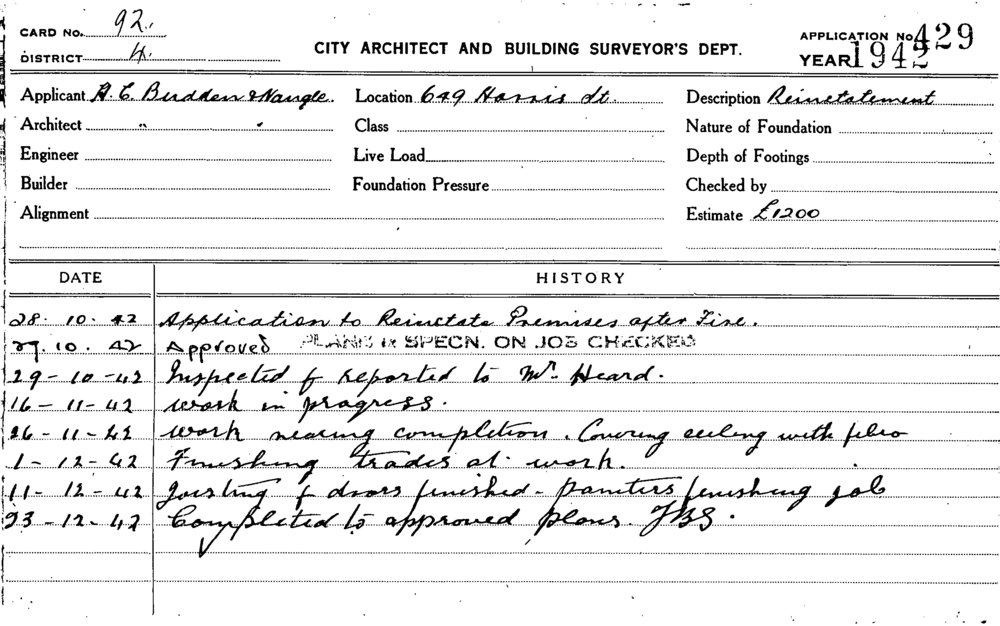 CARD No. 92.
DISTRICT 4.
CITY ARCHITECT AND BUILDING SURVEYOR'S DEPT.
APPLICATION No. 429
YEAR 1942
Applicant A. C. Budden & Nangle. Location 649 Harris St. Description Reinstatement
Architect " " Class Nature of Foundation
Engineer Live Load Depth of Footings
Builder Foundation Pressure Checked by
Alignment Estimate £1200
DATE HISTORY
28. 10. 42 Application to Reinstate Premises after Fire.
29. 10. 42 Approved PLANS & SPECN. ON JOB CHECKED
29-10-42 Inspected & reported to Mr. Heard.
16-11-42 work in progress.
26-11-42 work nearing completion. Covering ceiling with fibro
1-12-42 Finishing trades at work.
11-12-42 & doors finished - painters finishing job
23-12-42 Completed to approved plans.